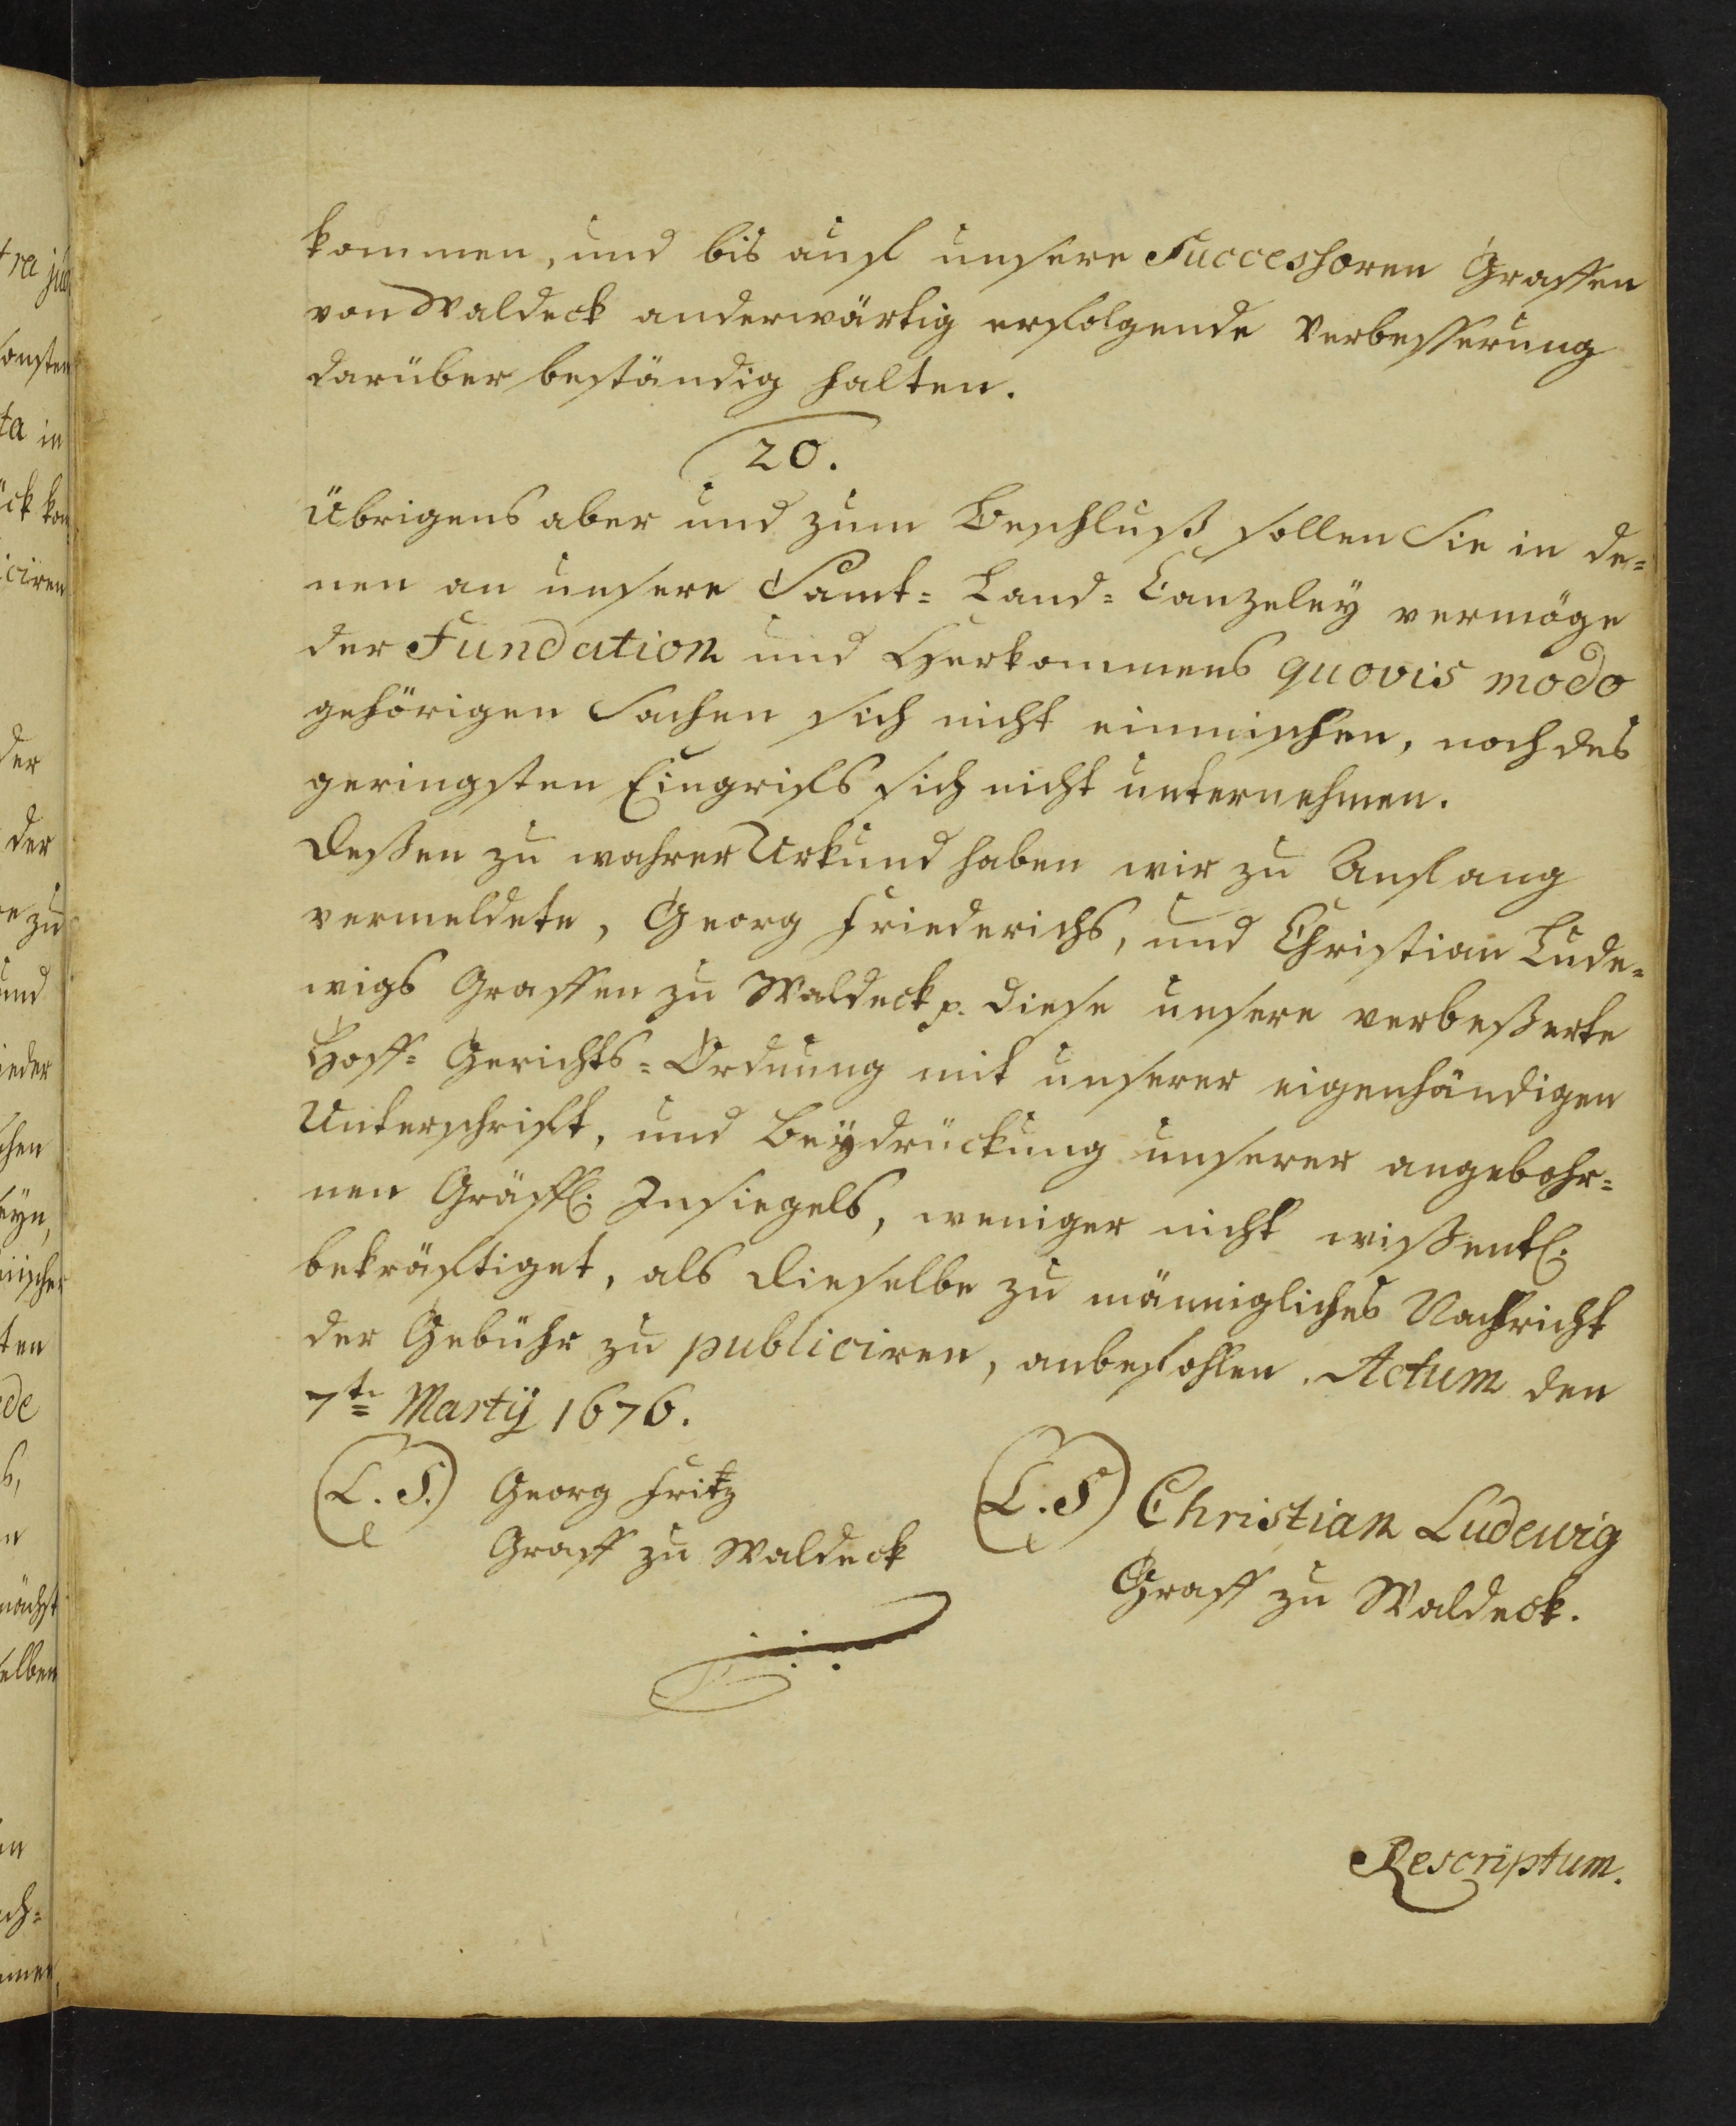 kommen, und bis auf unsere Successoren Graffen
von Waldeck anderwärtig erfolgende Verbesserung
darüber beständig halten.
20.
Übrigens aber und zum Beschluß sollen Sie in de=
nen an unsere Samt= Land= Canzeley vermöge
der Fundation und Herkommens quovis modo
gehörigen Sachen sich nicht einmischen, noch des
geringsten Eingrifs sich nicht unternehmen.
Deßen zu wahrer Urkund haben wir zu Anfang
vermeldete, Georg Friederichs, und Christian Lude=
wigs Graffen zu Waldeck p. diese unsere verbeßerte
Hoff= Gerichts= Ordnung mit unserer eigenhändigen
Unterschrift, und Beydrückung unserer angebohr=
nen Gräffl. Insiegels, weniger nicht wißentl.
bekräftiget, als dieselbe zu männigliches Nachricht
der Gebühr zu publiciren, anbefohlen. Actum den
7te Martij 1676.
(L. S.) Georg Fritz
Graff zu Waldeck
(L. S) Christian Ludewig
Graff zu Waldeck.
Rescriptum.